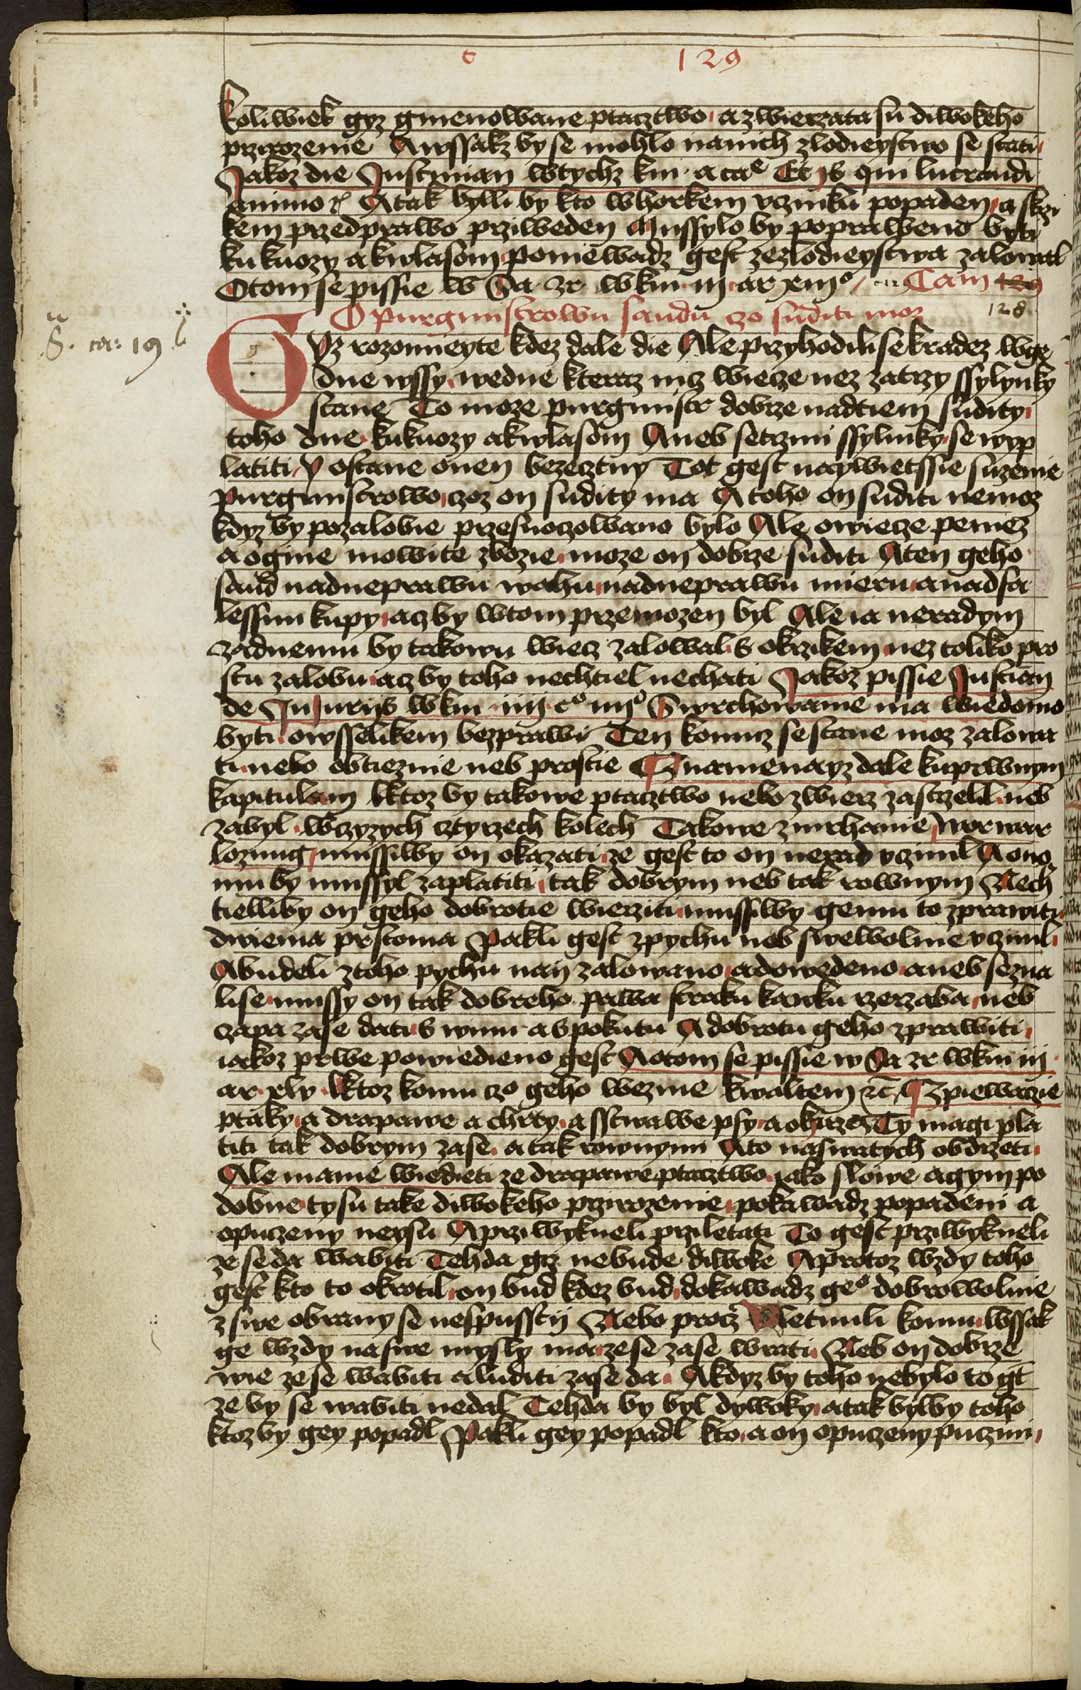 c 129
koliwiek gyz gmenowane ptacztwo a zwierzata su diwokeho
przirozenie Awssakz by se mohlo nanich zlodieystwo se stati
Jakoz die Justinian wtychz kni
animo Atak bylli by kto whorkem vczinku popaden a skrzi
kem przedprawo przíweden Mussylo by popraweno byti
kukuozy akwlasom poniewadz gest zezlodieystwa zalowal
Otom se pissie w Sa zr wkni iii ar xiii° Cam 129
128
O purgmistrowu saudu czo suditi moz
S. car: 19
Gyz rozomieyte kdez dale die Ale przyhodili se kradez wge
dne wssy wedne kteraz nicz wiecze nez zatrzy ssylynky
stane To moze purgmistr dobrze nadtiem sudity
toho dne kukuozy akwlasom Aneb setrzmi ssylinky se wyp
latiti y ostane onen bezecztny Tot gest naywietssie suzenie
purgmistrowo czoz on sudity ma A toho on suditi nemoz
kdyz by pozalobie przesnoczowano bylo Ale owiecze peniez
a ogine mowite zbozie moze on dobrze suditi Aten geho
saud nadneprawu wahu nadneprawu mieru a nadfa
lessnu kupy acz by wtom przemozen byl Ale ia neradym
zadnemu by takowu wiecz zalowal s okrzikem nez toliko pro
stu zalobu acz by toho nechtiel nechati Jakoz pissie Justian
de Injuriis wkni iiii c° iiii° Swrchowanie ma wiedomo
byti owsselikem bezprawi Ten komuz se stane moz zalowa
ti nebo obtieznie neb prostie Znamenayz dale kuprwnym
kapitulam Ktoz by takowe ptacztwo nebo zwierz zastrzelil neb
zabyl wczyzych cztyrzech kolech Takowe zmrhanie worwar
lozung mussilby on okazati ze gest to on nerad vczinil A ono
mu by mussyl zaplatiti tak dobrym neb tak rownym Nech
tielliby on geho dobrotie wierziti mussilby gemu to zprawiti
dwiema prstoma Pakli gest zpychu neb swewolnie vczinil
Abudeli ztoho pychu nan zalowano a dowedeno aneb sezna
lise mussy on tak dobreho pawa straku kawku rzerzaba neb
czapa zase dati s winu a s pokutu A dobrotu geho zprawiti
iakoz prwe powiedieno gest Aotom se pissie w Sa zr wkni iii
ar xlv Ktoz komu czo geho wezme kwaltem etc Zpiewaczie
ptaky a drapawe a chrty a sstwawe psy a oharze Ty magi pla
titi tak dobrym zase a tak rownymi Ato naswatych obdrzeti
Ale mame wiedieti ze drapawe ptacztwo iako slowe agym po
dobne ty su take diwokeho przirozenie pokawadz popadeni a
opuczeny neysu Aprziwykneli prziletati To gest prziwykneli
ze se da wabiti Tehda giz nebude diwoke Aprotoz wzdy toho
gest kto to okrotil on bud kdez bud dokawadz ge° dobrowolnie
z swe obrany se nespusstij Nebo procz Vletnuli komu wssak
ge wzdy na swe mysly ma ze se zase wrati Neb on dobrze
wie ze se wabiti a luditi zase da Akdyz by toho nebylo to gt
ze by se wabiti nedal Tehda by byl dywoky a tak bylby toho
ktoz by gey popadl Pakli gey popadl kto a on opuczeny puczini